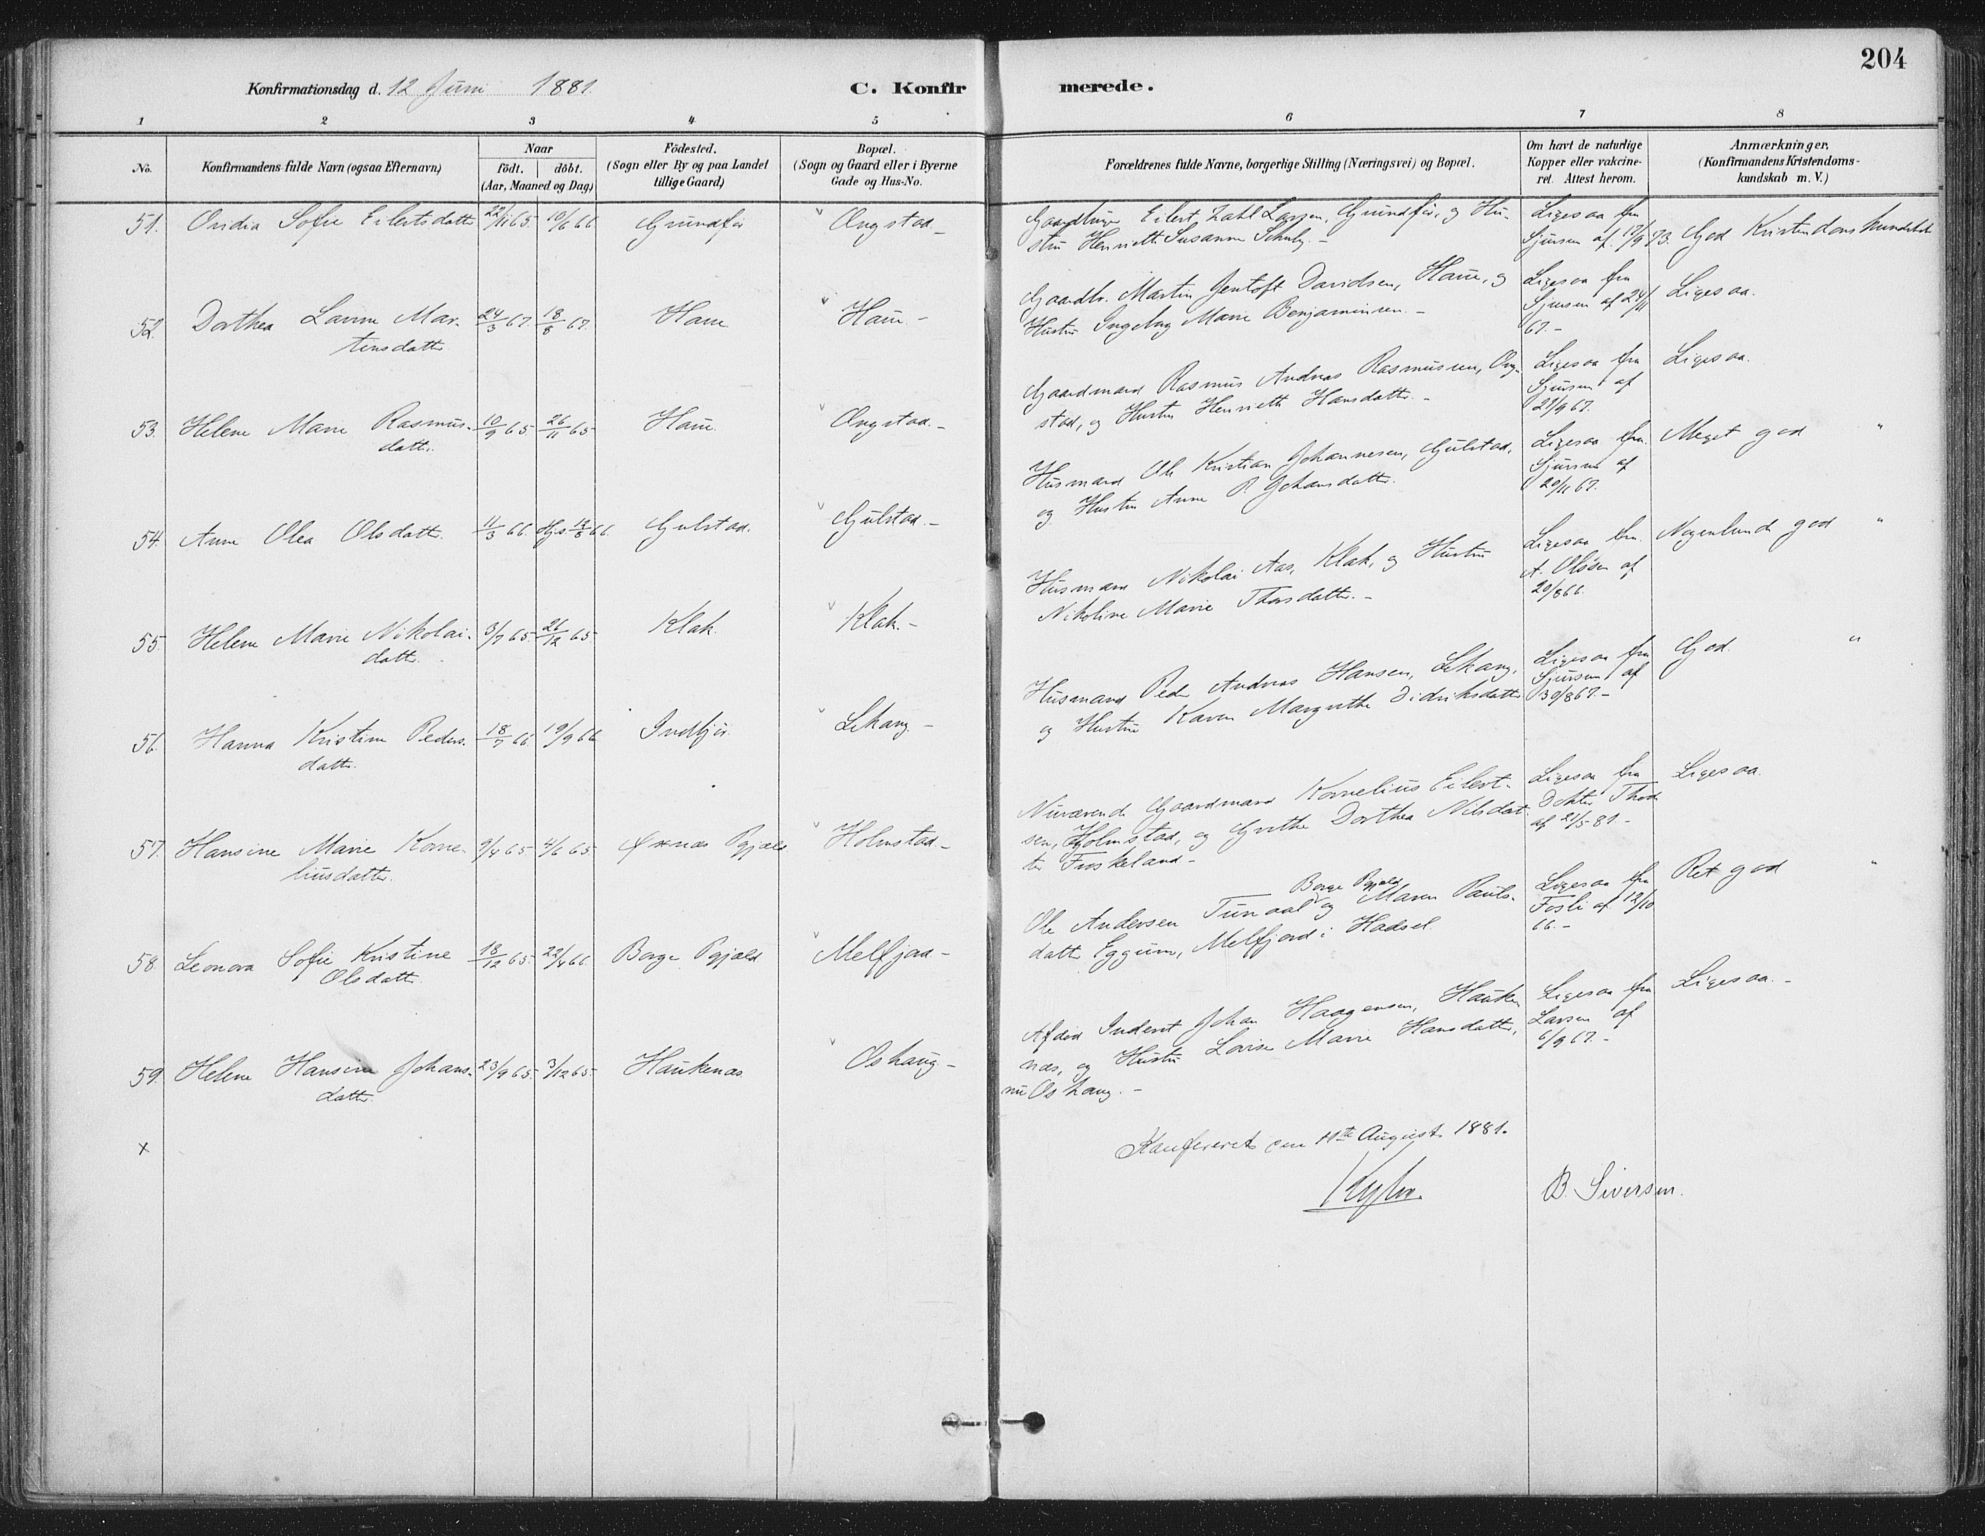 204
Konfirmationsdag d. 12 Juni 1881.
C. Konfirmerede.
1 2 3 4 5 6 7 8
No.
Konfirmandens fulde Navn (ogsaa Efternavn)
Naar
födt. döbt.
(Aar, Maaned og Dag)
Födested.
(Sogn eller By og paa Landet
tillige Gaard)
Bopæl.
(Sogn og Gaard eller i Byerne
Gade og Hus-No.
Forældrenes fulde Navne, borgerlige Stilling (Næringsvei) og Bopæl.
Om havt de naturlige
Kopper eller vakcine-
ret. Attest herom.
Anmærkninger.
(Konfirmandens Kristendoms-
kundskab m. V.)
51. Ovidia Sofie Eilertsdatt 22/11 65. 10/6 66 Grundfør Ongstad
Eilert Zahl Larsen, Grundfør, og Hu-
stru Henriette Susanne
Ligesaa fra
Sjursen af 12/9 73.
God Kristendomskundskab
52. Dorthea Lavine Mar-
tensdatter 24/3 67. 18/8 67. Haue Haue
Gaardbr. Martin Jentoft Davidsen, Haue, og
Hustru Ingeborg Marie Benjaminsen
Ligesaa fra
Sjursen af 24/11
67.
Ligesaa.
53. Helene Marie Rasmus-
datter. 10/9 65 26/11 65 Haue Ongstad
Gaardmand Rasmus Andreas Rasmussen, Ong-
stad, og Hustru Henriette Hansdatter.
Ligesaa fra
Sjursen af
21/9 67.
Ligesaa.
54. Anne Olea Olsdatter. 11/3 66. Hjs 18/3 66 Gulstad. Gulstad.
Husmand Ole Kristian Johannesen, Gulstad,
og Hustru Anne P. Johansdatter.
Ligesaa fra
Sjursen af
20/11 67.
Meget god "
55. Helene Marie Nikolai-
datter. 3/7 65. 26/12 65 Klak. Klak.
Husmand Nikolai Aas, Klak, og Hustru
Nikoline Marie Thorsdatter.
Ligesaa fra
A. Olsen af
20/8 66.
Nogenlunde god "
56. Hanna Kristine Peders-
datter. 18/7 66. 19/9 66 Indfjor. Lekang
Husmand Peder Andreas Hansen, Lekang,
og Hustru Karen Margrethe Didriksdatter
Ligesaa fra
Sjursen af
30/8 67.
God. "
57. Hansine Marie Korne-
liusdatter. 9/4 65 4/6 65 Øxnæs Pgjæld Holmstad
Nuværende Gaardmand Kornelius Eilert-
sen, Holmstad, og Grethe Dorthea Nilsdat-
ter Froskeland
Ligesaa fra
Dokter Thode
af 21/5 81.
Ligesaa.
58. Leonora Sofie Kristine
Olsdatter. 18/12 65. 22/4 66 Borge Pgjæld Melfjord
Borge Pgjæld
Ole Andersen Tunaal og Maren Pauls-
datter Eggum, Melfjord i Hadsel.
Ligesaa fra
Fosli af 12/10
66.
Ret god "
59. Helene Hansine Johans-
datter. 23/9 65. 3/12 65. Haukenæs Oshaug
Afdød Inderst Johan Haagensen, Hauke-
næs, og Hustru Lovise Marie Hansdatter,
nu Oshaug.
Ligesaa fra
Larsen af
6/9 67.
Ligesaa.
x
Konfereret den 11te August 1881.
B. Siversen.